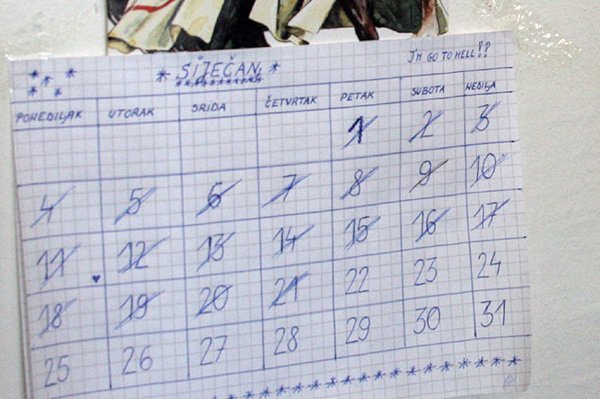 * SIJEČANJ *
I'M GO TO HELL!?
PONEDILJAK UTORAK SRIDA ČETVRTAK PETAK SUBOTA NEDILJA
1 2 3
4 5 6 7 8 9 10
11 12 13 14 15 16 17
18 19 20 21 22 23 24
25 26 27 28 29 30 31